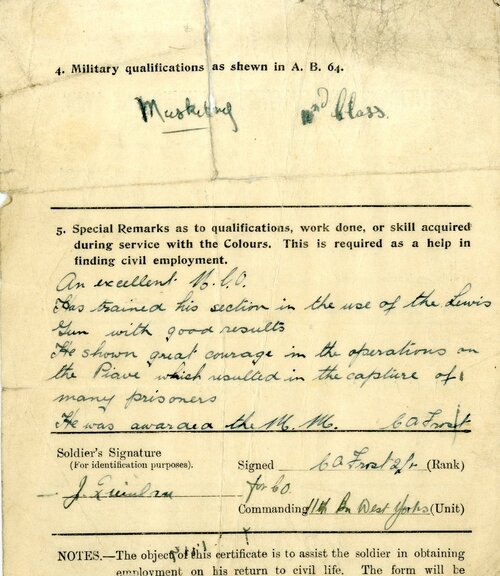 4. Military qualifications as shewn in A. B. 64.
Musketry nd Class.
5. Special Remarks as to qualifications, work done, or skill acquired
during service with the Colours. This is required as a help in
finding civil employment.
An excellent N.C.O.
Has trained his section in the use of the Lewis
Gun with good results
He shown great courage in the operations on
the Piave which resulted in the capture of
many prisoners
He was awarded the M.M. CA Frost
Soldier's Signature
(For identification purposes).
Signed CA Frost 2/Lt (Rank)
J.
for CO.
Commanding 11th Bn West Yorks (Unit)
NOTES.—The object of this certificate is to assist the soldier in obtaining
employment on his return to civil life. The form will be